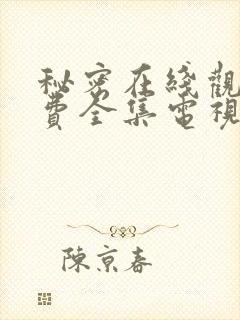 秘密在綫觀
費全集電視
陳京春